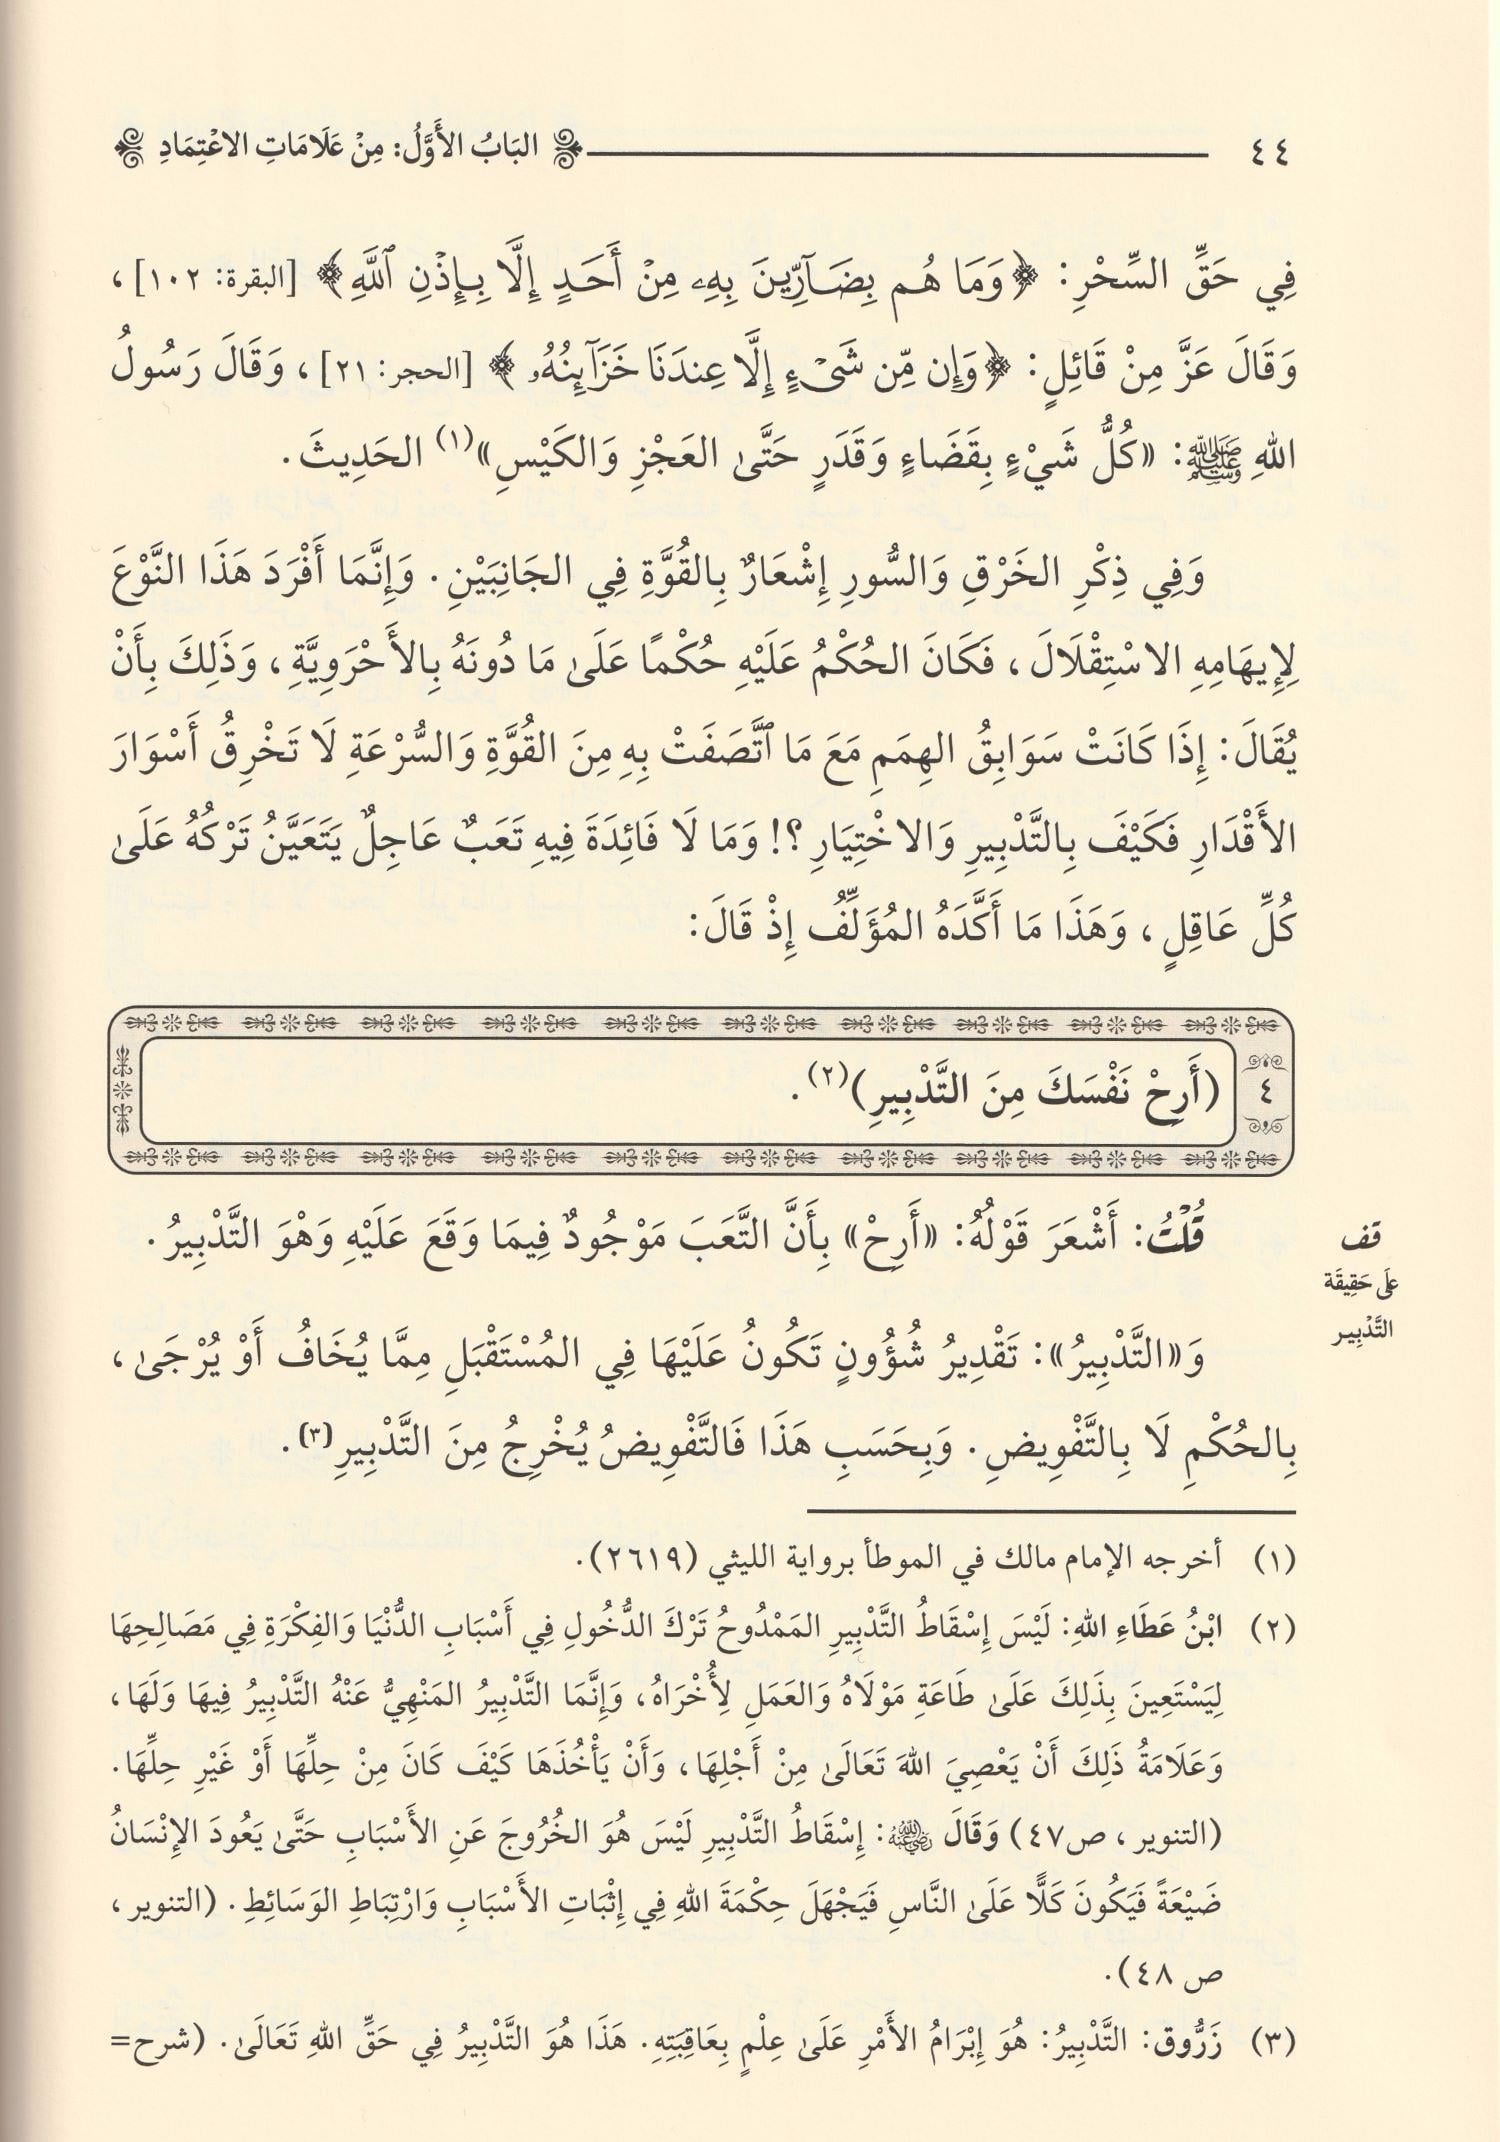 ٤٤ البَابُ الأَوَّلُ: مِنْ عَلَامَاتِ الاعْتِمَادِ
فِي حَقِّ السِّحْرِ: ﴿وَمَا هُم بِضَآرِّينَ بِهِۦ مِنْ أَحَدٍ إِلَّا بِإِذْنِ ٱللَّهِ﴾ [البقرة: ١٠٢]،
وَقَالَ عَزَّ مِنْ قَائِلٍ: ﴿وَإِن مِّن شَيْءٍ إِلَّا عِندَنَا خَزَآئِنُهُۥ﴾ [الحجر: ٢١]، وَقَالَ رَسُولُ
اللهِ ﷺ: «كُلُّ شَيْءٍ بِقَضَاءٍ وَقَدَرٍ حَتَّىٰ العَجْزِ وَالكَيْسِ»(١) الحَدِيثَ.
وَفِي ذِكْرِ الخَرْقِ وَالسُّورِ إِشْعَارٌ بِالقُوَّةِ فِي الجَانِبَيْنِ. وَإِنَّمَا أَفْرَدَ هَذَا النَّوْعَ
لِإِيهَامِهِ الاسْتِقْلَالَ، فَكَانَ الحُكْمُ عَلَيْهِ حُكْمًا عَلَىٰ مَا دُونَهُ بِالأَحْرَوِيَّةِ، وَذَلِكَ بِأَنْ
يُقَالَ: إِذَا كَانَتْ سَوَابِقُ الهِمَمِ مَعَ مَا ٱتَّصَفَتْ بِهِ مِنَ القُوَّةِ وَالسُّرْعَةِ لَا تَخْرِقُ أَسْوَارَ
الأَقْدَارِ فَكَيْفَ بِالتَّدْبِيرِ وَالاخْتِيَارِ؟! وَمَا لَا فَائِدَةَ فِيهِ تَعَبٌ عَاجِلٌ يَتَعَيَّنُ تَرْكُهُ عَلَىٰ
كُلِّ عَاقِلٍ، وَهَذَا مَا أَكَّدَهُ المُؤَلِّفُ إِذْ قَالَ:
٤ (أَرِحْ نَفْسَكَ مِنَ التَّدْبِيرِ)(٢).
قُلْتُ: أَشْعَرَ قَوْلُهُ: «أَرِحْ» بِأَنَّ التَّعَبَ مَوْجُودٌ فِيمَا وَقَعَ عَلَيْهِ وَهْوَ التَّدْبِيرُ.
قف
عَلَى حَقِيقَة
التَّدْبِير
وَ«التَّدْبِيرُ»: تَقْدِيرُ شُؤُونٍ تَكُونُ عَلَيْهَا فِي المُسْتَقْبَلِ مِمَّا يُخَافُ أَوْ يُرْجَىٰ،
بِالحُكْمِ لَا بِالتَّفْوِيضِ. وَبِحَسَبِ هَذَا فَالتَّفْوِيضُ يُخْرِجُ مِنَ التَّدْبِيرِ(٣).
(١) أخرجه الإمام مالك في الموطأ برواية الليثي (٢٦١٩).
(٢) ابْنُ عَطَاءِ اللهِ: لَيْسَ إِسْقَاطُ التَّدْبِيرِ المَمْدُوحُ تَرْكَ الدُّخُولِ فِي أَسْبَابِ الدُّنْيَا وَالفِكْرَةِ فِي مَصَالِحِهَا
لِيَسْتَعِينَ بِذَلِكَ عَلَىٰ طَاعَةِ مَوْلَاهُ وَالعَمَلِ لِأُخْرَاهُ، وَإِنَّمَا التَّدْبِيرُ المَنْهِيُّ عَنْهُ التَّدْبِيرُ فِيهَا وَلَهَا،
وَعَلَامَةُ ذَلِكَ أَنْ يَعْصِيَ اللهَ تَعَالَىٰ مِنْ أَجْلِهَا، وَأَنْ يَأْخُذَهَا كَيْفَ كَانَ مِنْ حِلِّهَا أَوْ غَيْرِ حِلِّهَا.
(التنوير، ص٤٧) وَقَالَ رضي الله عنه: إِسْقَاطُ التَّدْبِيرِ لَيْسَ هُوَ الخُرُوجَ عَنِ الأَسْبَابِ حَتَّىٰ يَعُودَ الإِنْسَانُ
ضَيْعَةً فَيَكُونَ كَلًّا عَلَىٰ النَّاسِ فَيَجْهَلَ حِكْمَةَ اللهِ فِي إِثْبَاتِ الأَسْبَابِ وَارْتِبَاطِ الوَسَائِطِ. (التنوير،
ص ٤٨).
(٣) زَرُّوق: التَّدْبِيرُ: هُوَ إِبْرَامُ الأَمْرِ عَلَىٰ عِلْمٍ بِعَاقِبَتِهِ. هَذَا هُوَ التَّدْبِيرُ فِي حَقِّ اللهِ تَعَالَىٰ. (شرح=